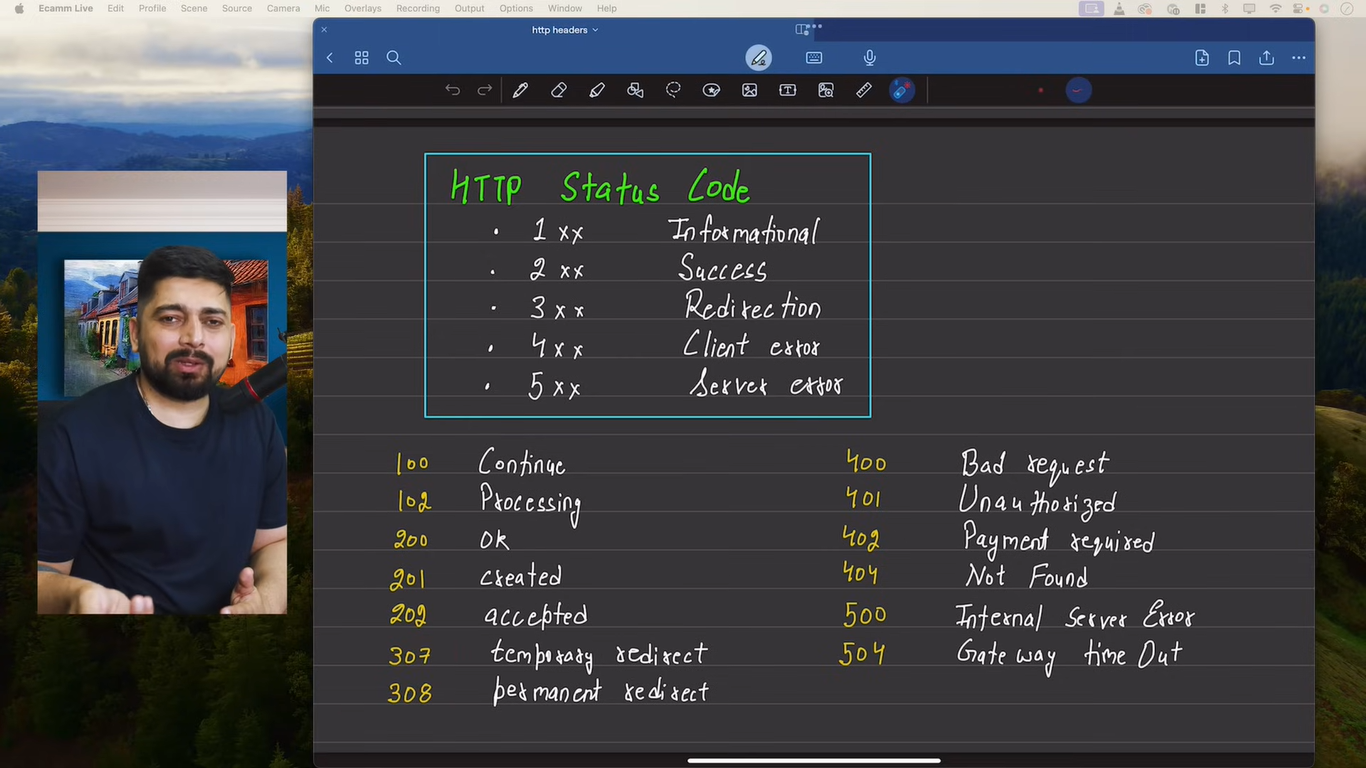 Ecamm Live Edit Profile Scene Source Camera Mic Overlays Recording Output Options Window Help
http headers
HTTP Status Code
• 1xx Informational
• 2xx Success
• 3xx Redirection
• 4xx Client error
• 5xx Server error
100 Continue
102 Processing
200 OK
201 created
202 accepted
307 temporary redirect
308 permanent redirect
400 Bad request
401 Unauthorized
402 Payment required
404 Not Found
500 Internal Server Error
504 Gateway time Out